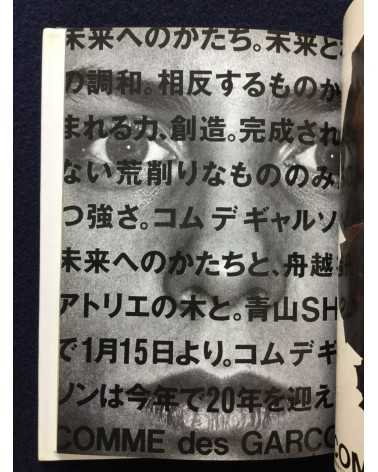 未来へのかたち。未来と
の調和。相反するものか
まれる力、創造。完成され
ない荒削りなもののみ
つ強さ。コム デ ギャルソ
未来へのかたちと、舟越
アトリエの木と。青山SH
で1月15日より。コム デ ギ
ソンは今年で20年を迎え
COMME des GARCO